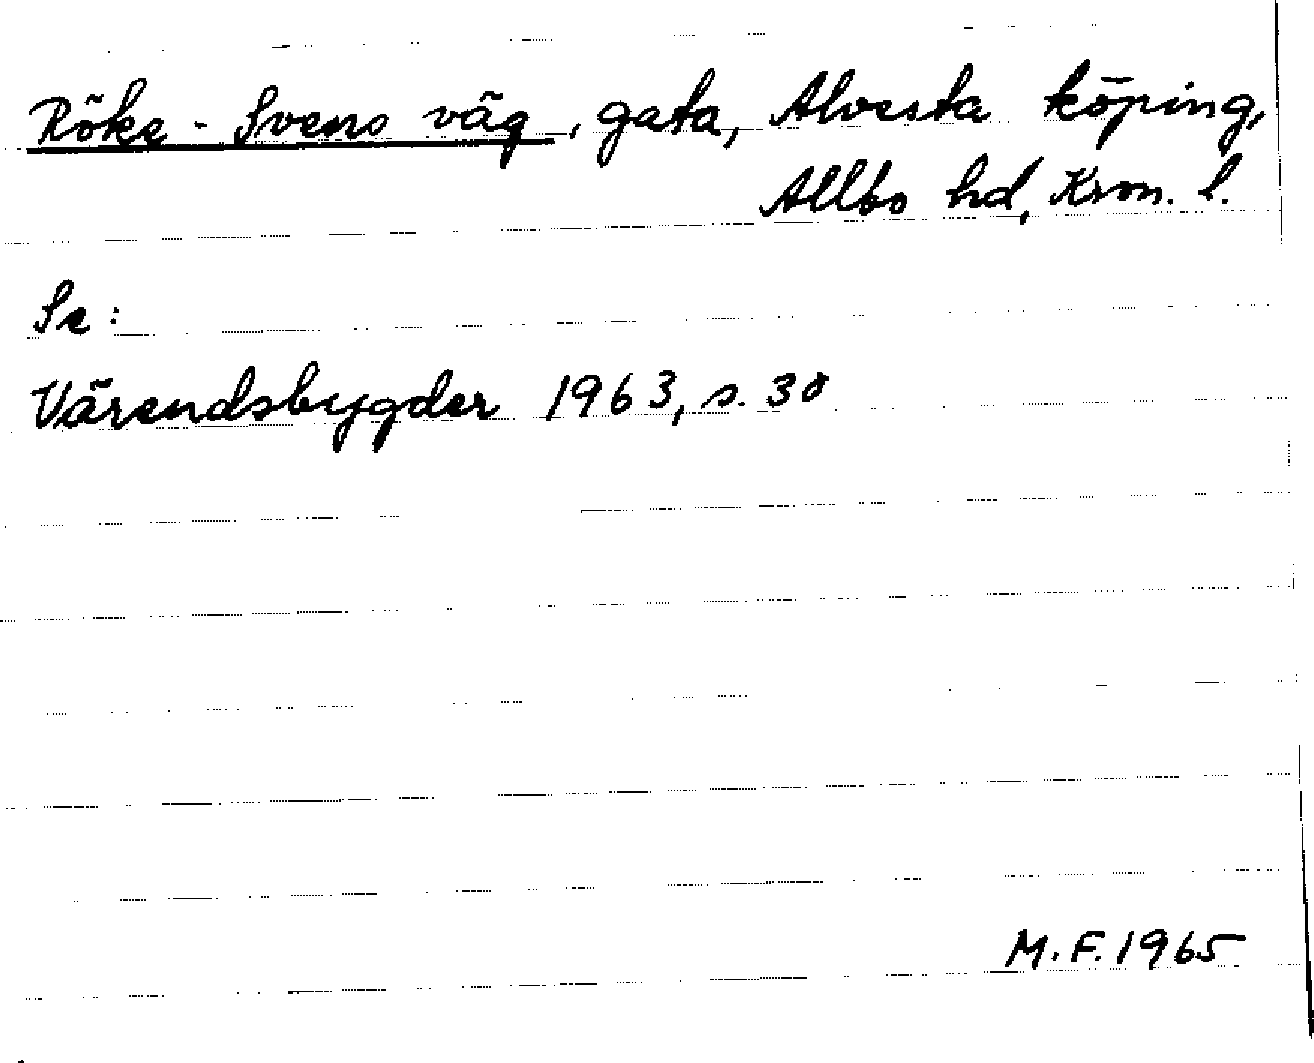 Röke-Svens väg, gata, Alvesta köping,
Allbo hd, Kron. l.
Se:
Värendsbygder 1963, s. 30
M.F. 1965